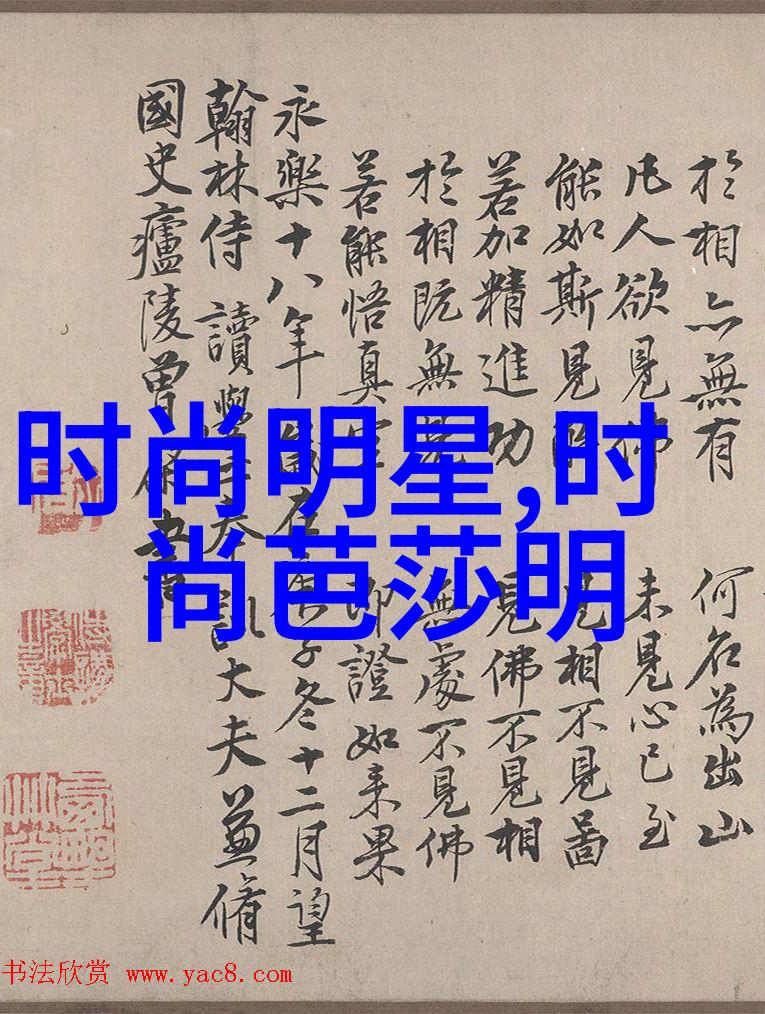 於相亦無有 何名為出山
凡人欲見佛 未見心已至
能如斯見 見相不見啚
若加精進功 見佛不見相
於相既無見 無處不見佛
若能悟真空 即證如来果
永樂十八年歲在庚子冬十二月望
翰林侍讀學士奉訓大夫兼脩
國史廬陵曾棨書
时尚明星,时
尚芭莎明
书法欣赏 www.yac8.com